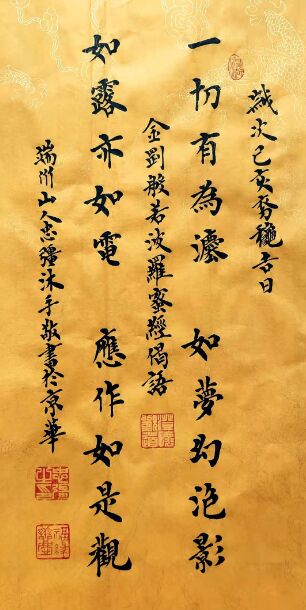 歲次己亥秀穐吉日
一切有為瀍 如夢幻泡影
金剛般若波羅蜜經偈語
如露亦如電 應作如是觀
端州山人忠彊沐手敬書於京華